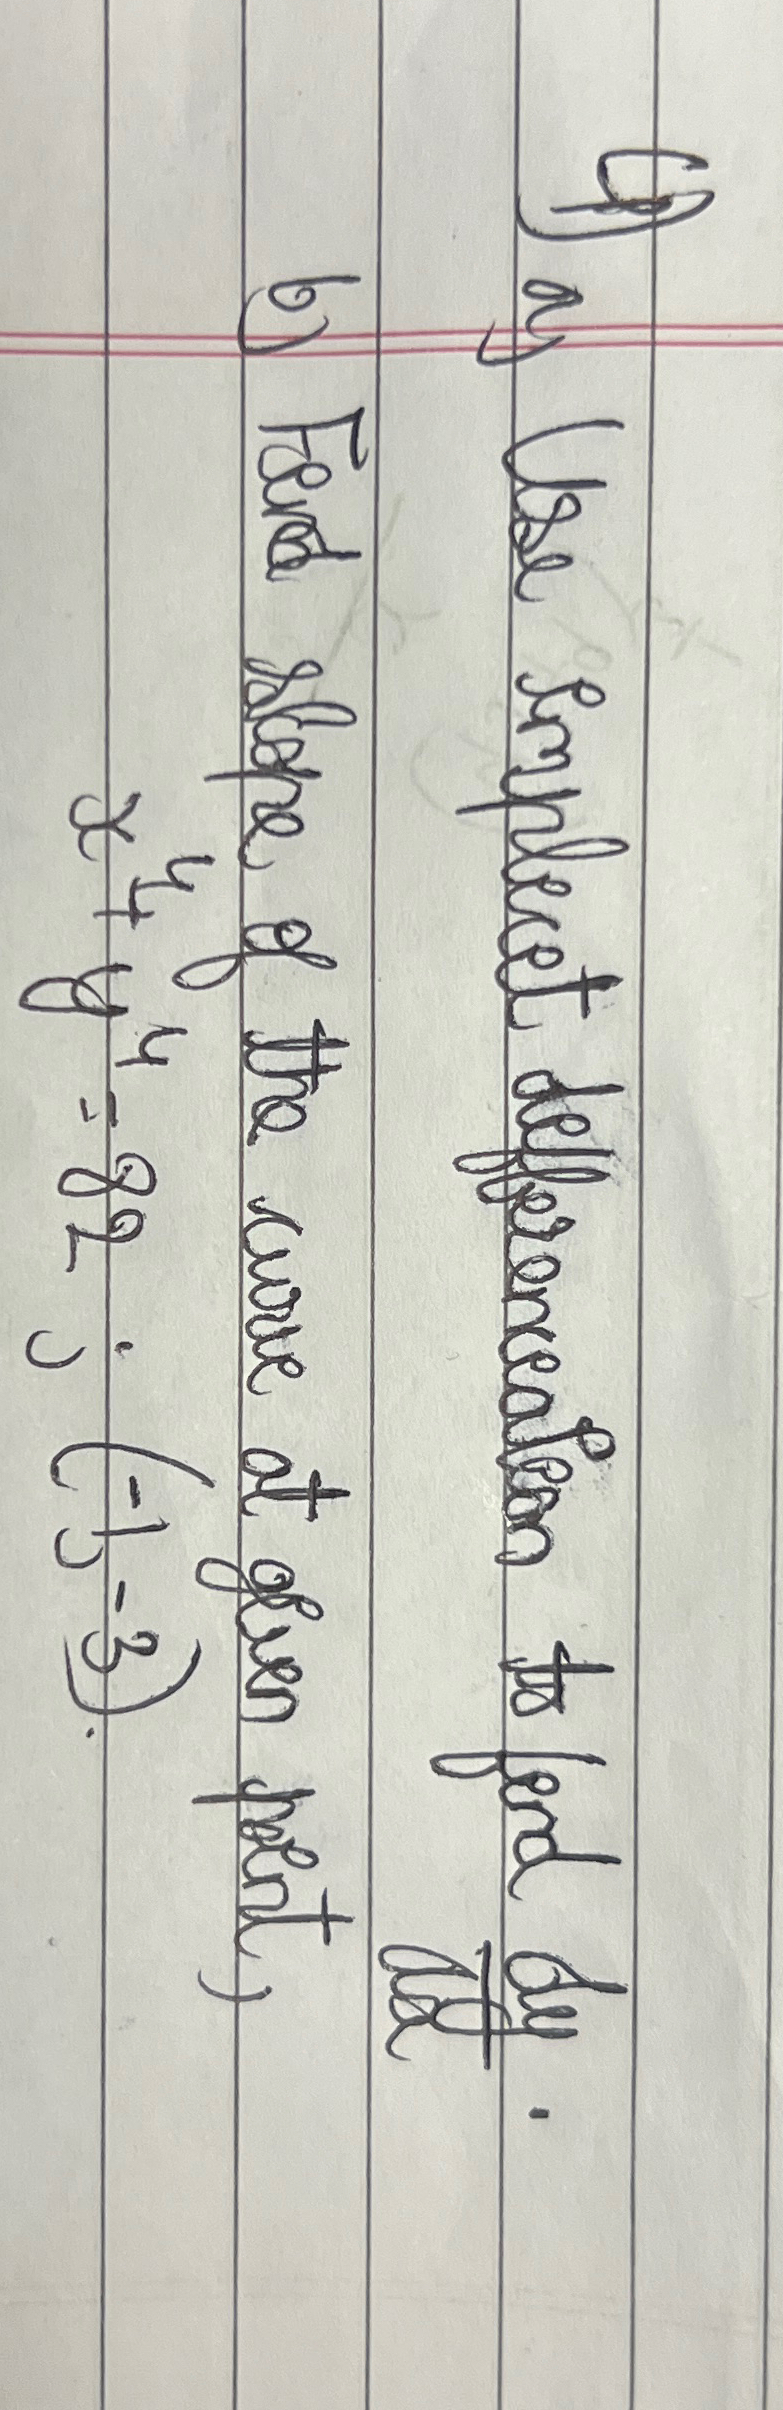 4) a) Use implicit differenciation to find dy/dx.
b) Find slope of the curve at given point)
x⁴+y⁴=82; (-1,-3).